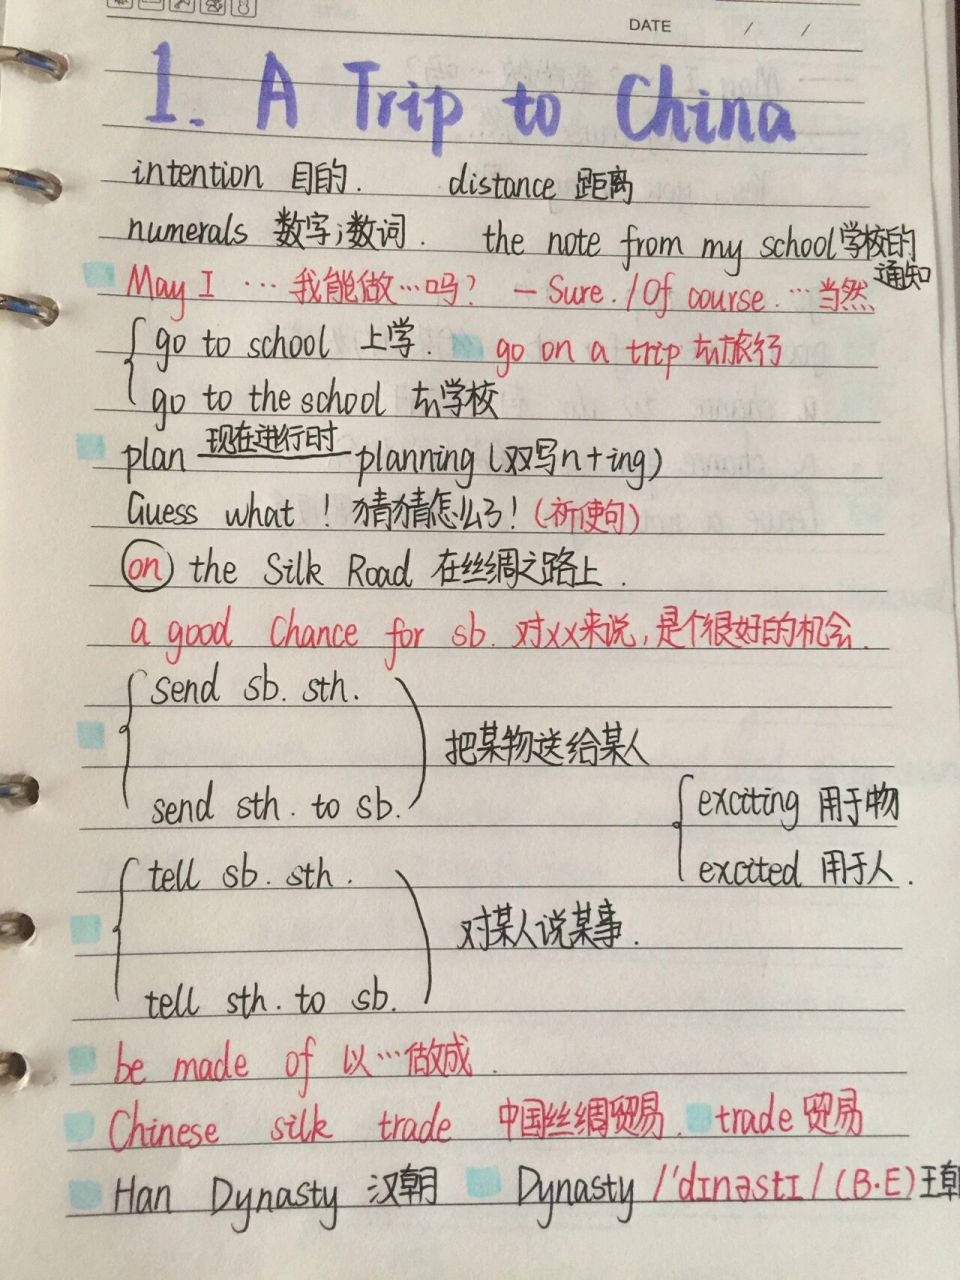 DATE / /
1. A Trip to China
intention 目的. distance 距离
numerals 数字;数词. the note from my school 学校的通知
May I … 我能做…吗? — Sure. / Of course. … 当然
go to school 上学. go on a trip 去旅行
go to the school 去学校
plan 现在进行时 planning (双写n+ing)
Guess what! 猜猜怎么了! (祈使句)
on the Silk Road 在丝绸之路上.
a good chance for sb. 对xx来说,是个很好的机会.
send sb. sth.
把某物送给某人
send sth. to sb.
exciting 用于物
excited 用于人.
tell sb. sth.
对某人说某事.
tell sth. to sb.
be made of 以…做成.
Chinese silk trade 中国丝绸贸易. trade 贸易
Han Dynasty 汉朝 Dynasty /'dɪnəstɪ/ (B·E) 王朝